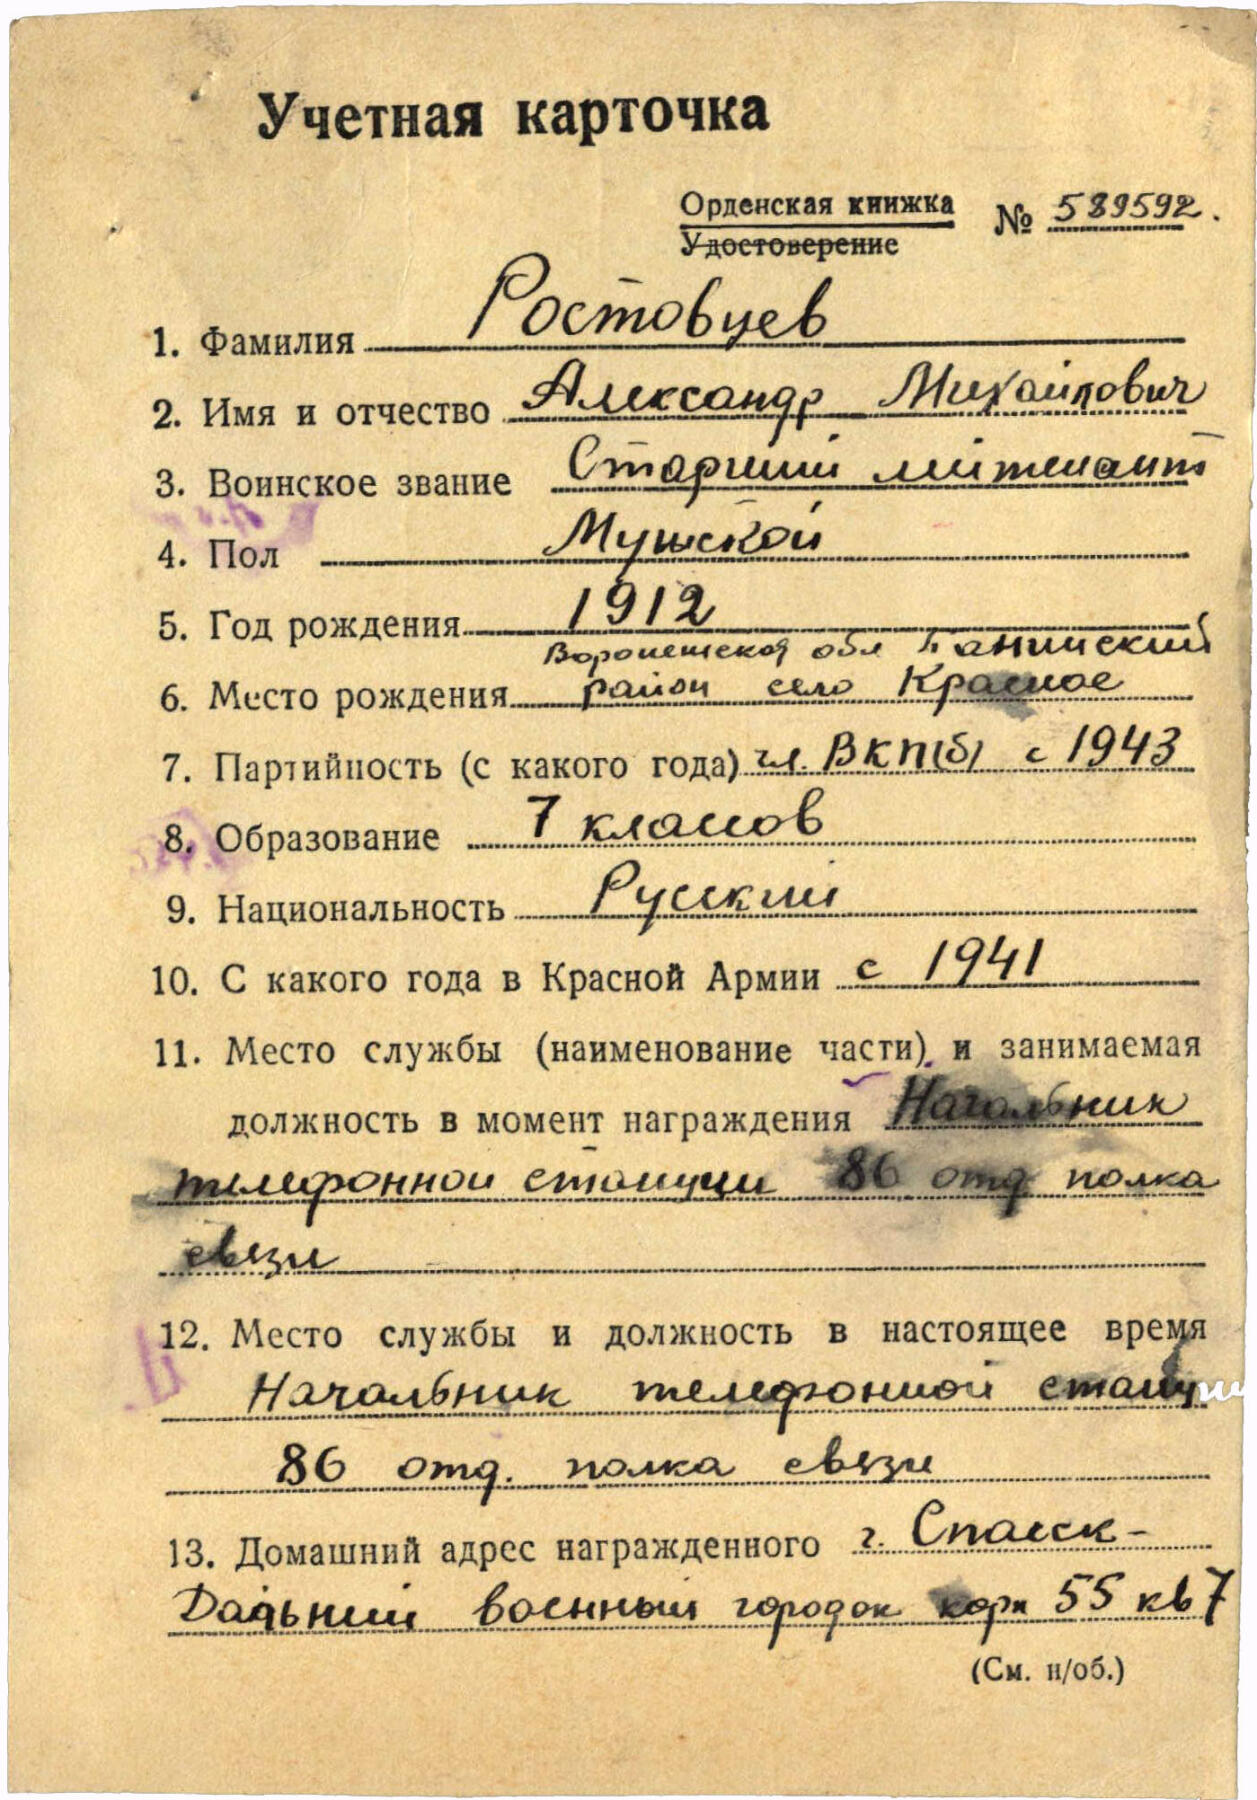 Учетная карточка
Орденская книжка № 589592.
Удостоверение
1. Фамилия Ростовцев
2. Имя и отчество Александр Михайлович
3. Воинское звание Старший лейтенант
4. Пол Мужской
5. Год рождения 1912
Воронежская обл Панинский
6. Место рождения район село Красное
7. Партийность (с какого года) чл. ВКП(б) с 1943
8. Образование 7 классов
9. Национальность Русский
10. С какого года в Красной Армии с 1941
11. Место службы (наименование части) и занимаемая
должность в момент награждения Начальник
телефонной станции 86 отд полка
связи
12. Место службы и должность в настоящее время
Начальник телефонной станции
86 отд. полка связи
13. Домашний адрес награжденного г. Спасск-
Дальний военный городок корп 55 кв 7
(См. н/об.)